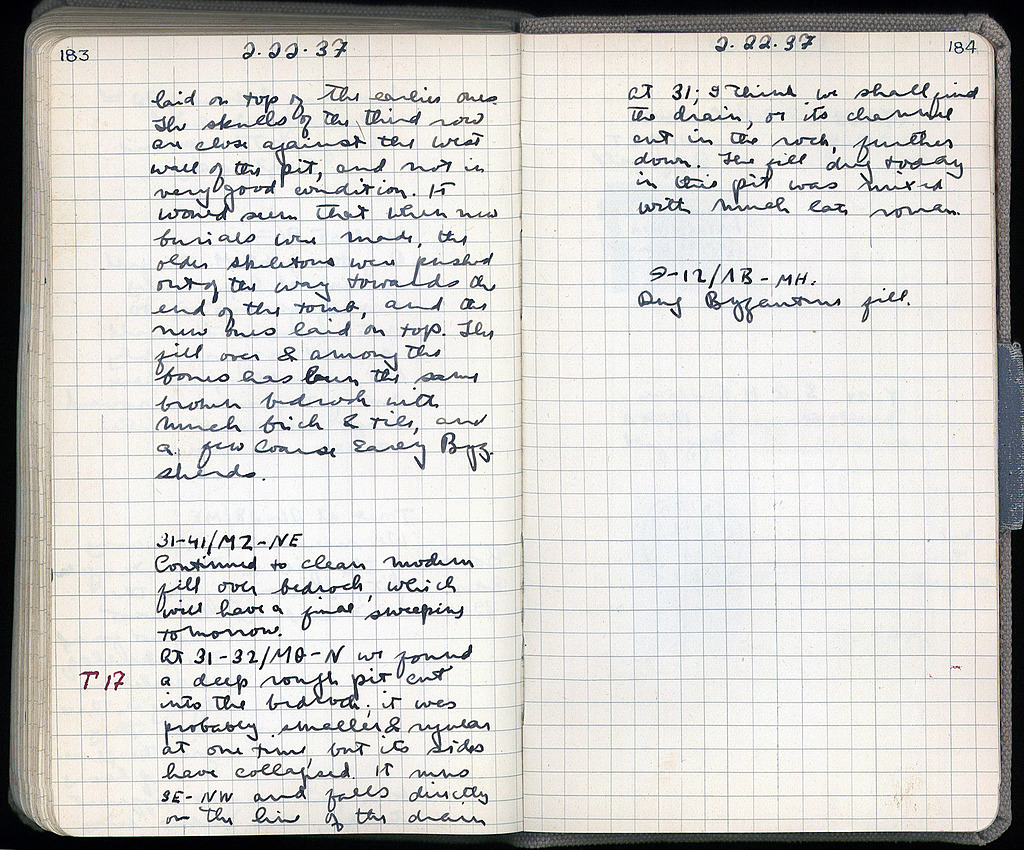 183
2.22.37
laid on top of the earlier ones.
The skulls of the third row
are close against the west
wall of the pit, and not in
very good condition. It
would seem that when new
burials were made, the
older skeletons were pushed
out of the way towards the
end of the tomb, and the
new ones laid on top. The
fill over & among the
bones has been the same
brown bedrock with
much brick & tile, and
a few coarse Early Byz.
sherds.
31-41/MZ-NE
Continued to clean modern
fill over bedrock, which
will have a final sweeping
tomorrow.
At 31-32/MΘ-N we found
T 17
a deep rough pit cut
into the bedrock; it was
probably smaller & regular
at one time, but its sides
have collapsed. It runs
SE-NW and falls directly
on the line of the drain
184
2.22.37
at 31; I think we shall find
the drain, or its channel
cut in the rock, further
down. The fill dug today
in this pit was mixed
with much late roman.
9-12/ΛB-MH.
Dug Byzantine fill.